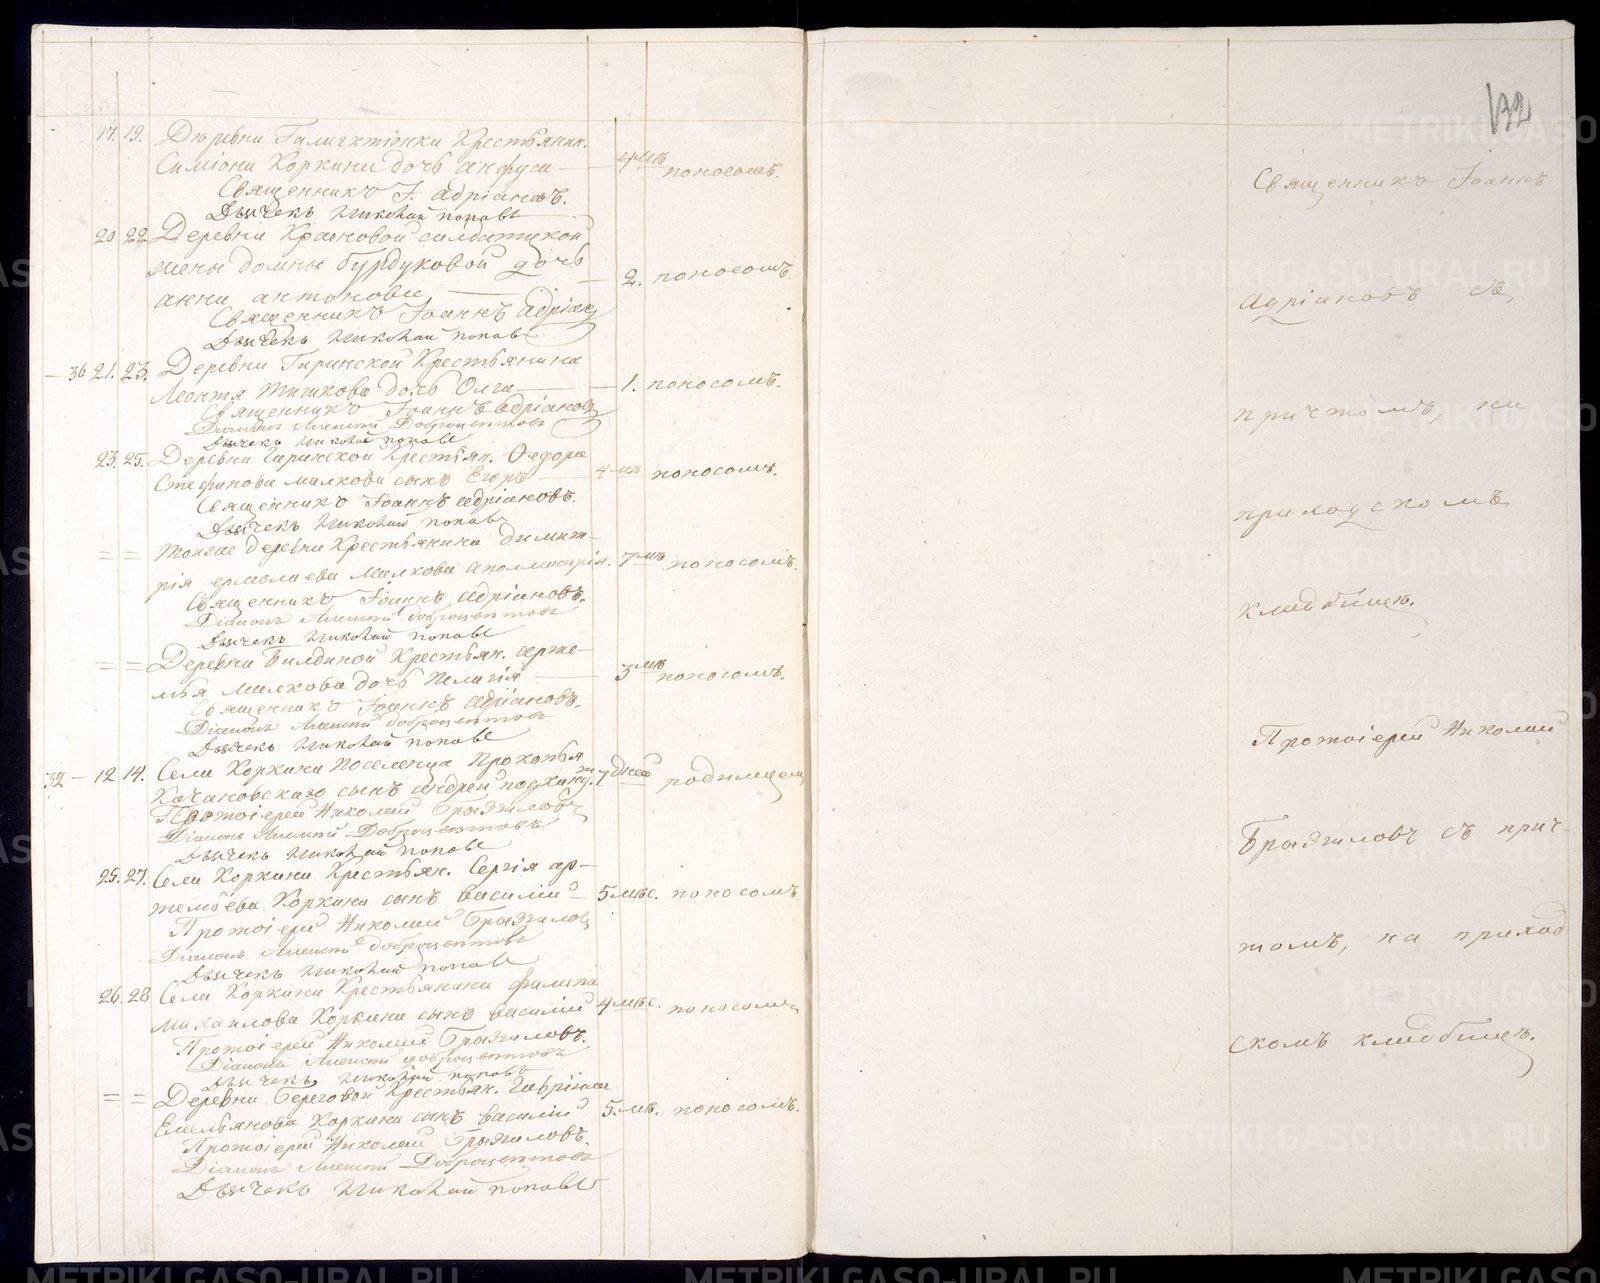 17. 19. Деревни Крестьянин.
Симиона Коркина дочь Анфуса 4 мѣ поносомъ.
Священникъ І. Адріановъ.
Дьячекъ Николай Поповъ
20 22 Деревни Красновой солдатской
жены Домны Бурдуковой дочь
Анна Антонова 2. поносомъ.
Священникъ Іоаннъ Адріановъ
Дьячекъ Николай Поповъ
36 21. 23. Деревни Гаринской Крестьянина
Леонтія дочь Олга 1. поносомъ.
Священникъ Іоаннъ Адріановъ
Діаконъ Алексій Доброцветтовъ
Дьячекъ Николай Поповъ
23. 25. Деревни Гаринской Крестьян. Ѳедора
Стефанова Малкова сынъ Егоръ 4 мѣ поносомъ.
Священникъ Іоаннъ Адріановъ.
Дьячекъ Николай Поповъ
= = Тойже деревни Крестьянина Димит-
рія Ермолаева Малкова Аполинарія. 7 мѣ. поносомъ.
Священникъ Іоаннъ Адріановъ.
Діаконъ Алексій Доброцветтовъ
Дьячекъ Николай Поповъ
= = Деревни Крестьян. Арте-
мья Малкова дочь Пелагія 3 мѣ поносомъ.
Священникъ Іоаннъ Адріановъ.
Діаконъ Алексій Доброцветтовъ
Дьячекъ Николай Поповъ
32 12 14. Села Коркина поселенца Прокопья
Качановскаго сынъ Андрей 7 дней родимцемъ
Протоіерей Николай Брызгаловъ
Діаконъ Алексій Доброцветтовъ
Дьячекъ Николай Поповъ
25. 27. Села Коркина Крестьян. Сергія Ар-
темьева Коркина сынъ Василій 5 мѣс. поносомъ
Протоіерей Николай Брызгаловъ
Діаконъ Алексій Доброцветтовъ
Дьячекъ Николай Поповъ
26. 28 Села Коркина Крестьянина Филипа
Михайлова Коркина сынъ Василій 4 мѣс. поносомъ
Протоіерей Николай Брызгаловъ.
Діаконъ Алексій Доброцветтовъ
Дьячекъ Николай Поповъ
= = Деревни Береговой Крестьян. Гавріила
Емельянова Коркина сынъ Василій 5. мѣ. поносомъ.
Протоіерей Николай Брызгаловъ.
Діаконъ Алексій Доброцветтовъ
Дьячекъ Николай Поповъ
132
Священникъ Іоаннъ
Адріановъ съ
причтомъ, на
приходскомъ
кладбищѣ.
Протоіерей Николай
Брызгаловъ съ прич-
томъ, на приход
скомъ кладбищѣ.
METRIKI.GASO-URAL.RU